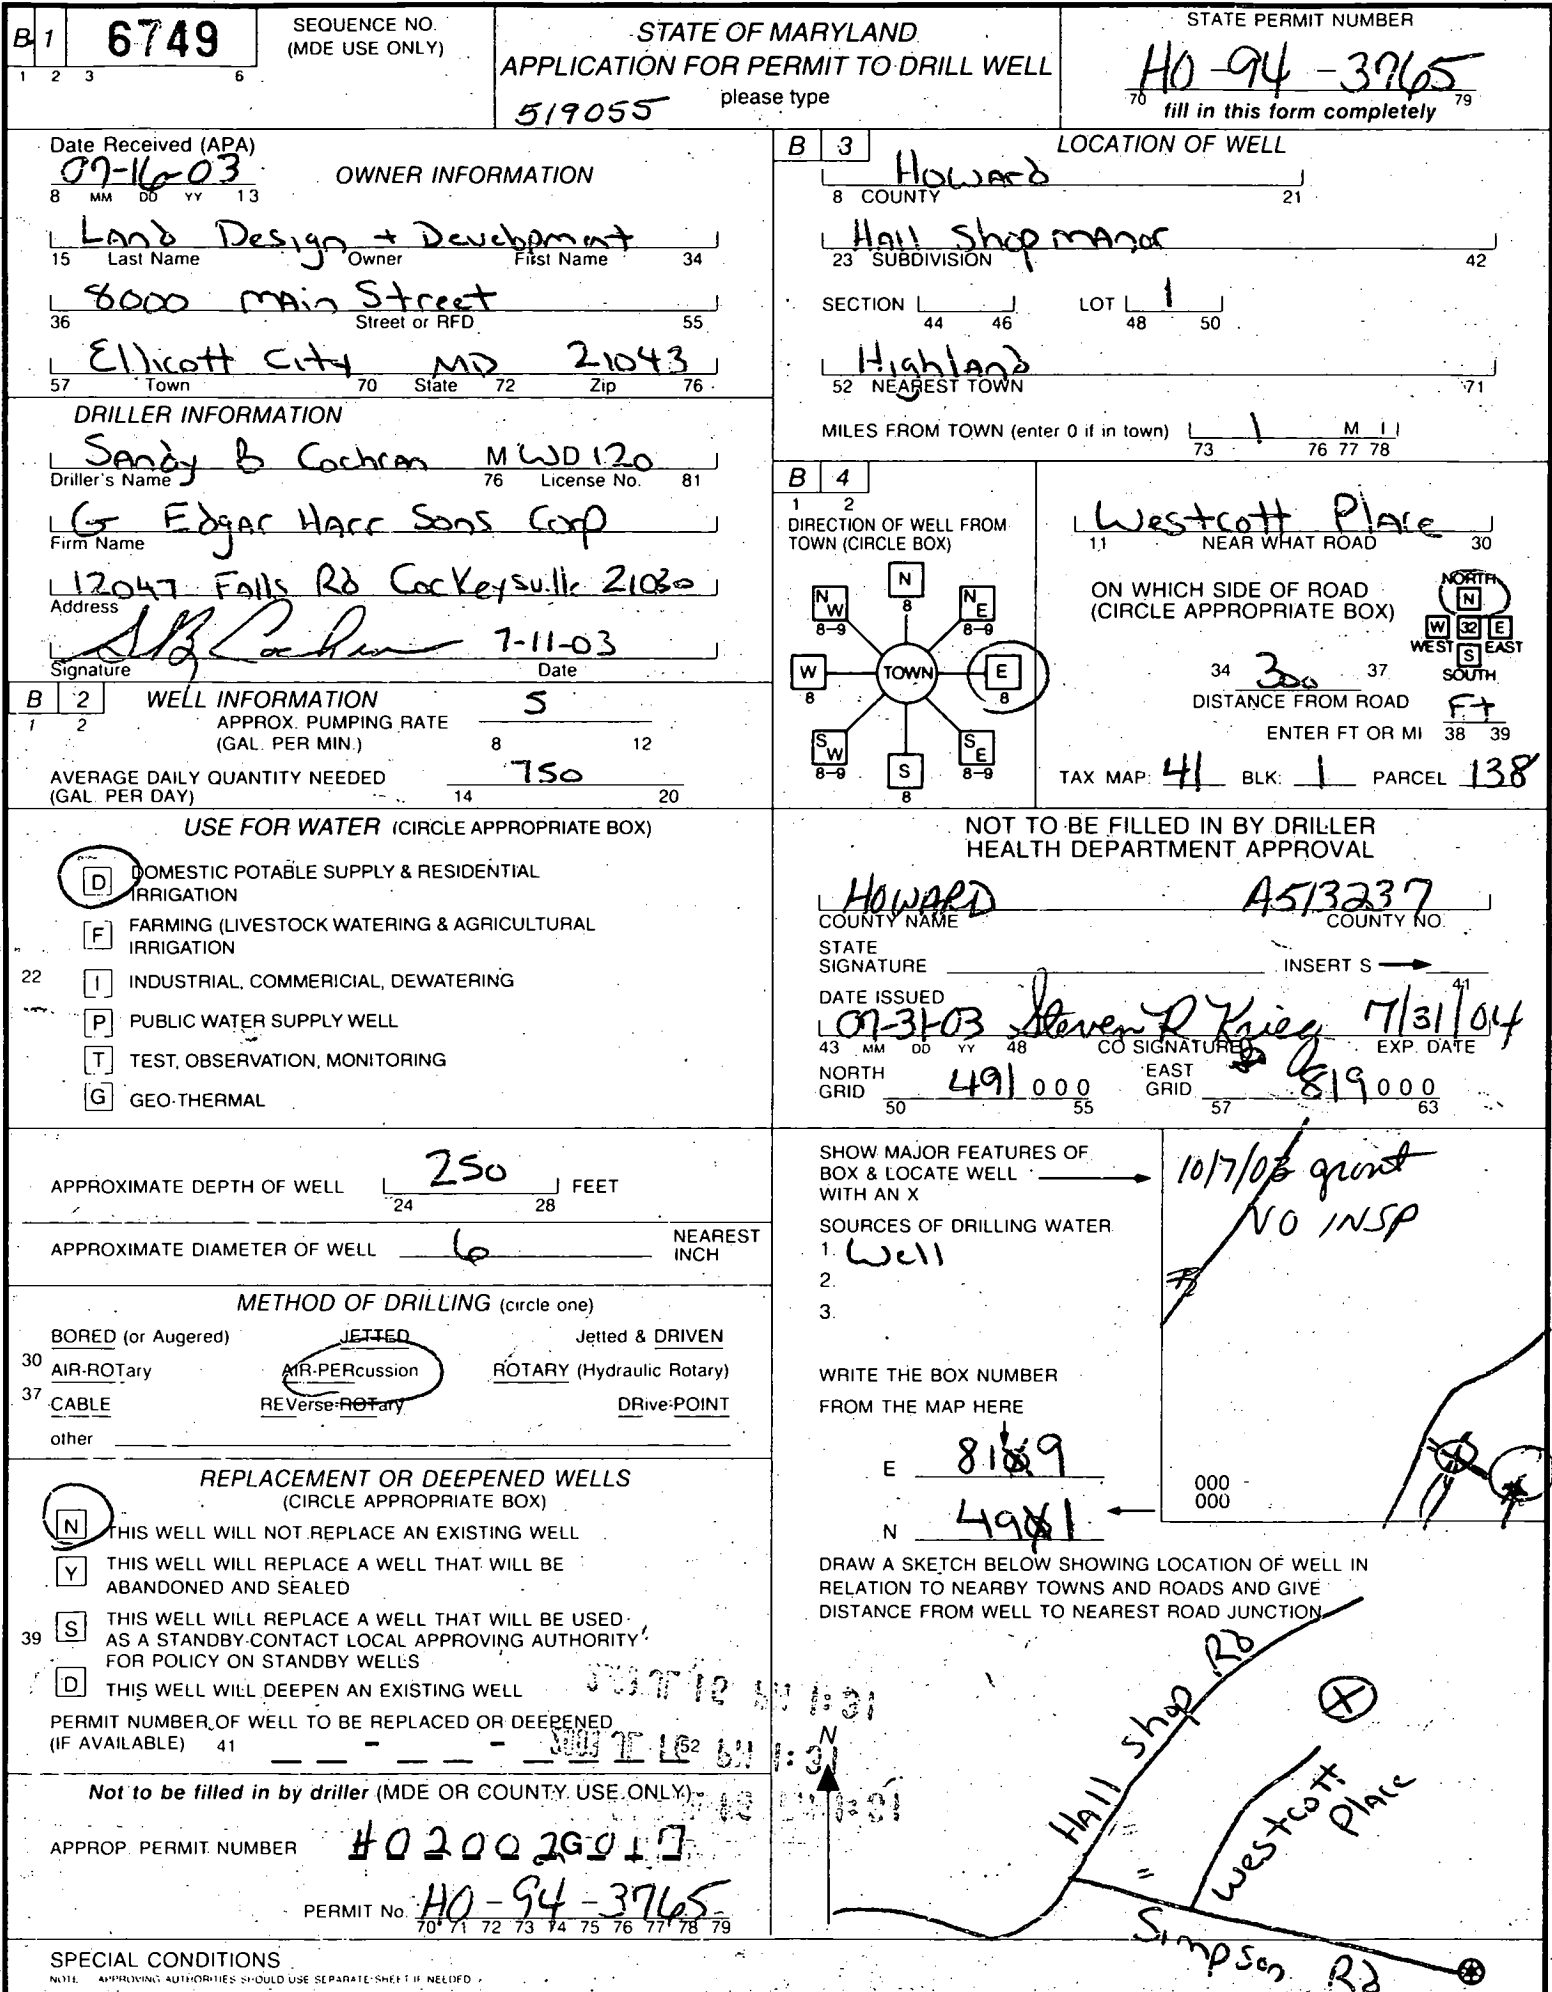 B 1 6749 SEQUENCE NO. (MDE USE ONLY)
1 2 3 6
STATE OF MARYLAND
APPLICATION FOR PERMIT TO DRILL WELL
please type
519055
STATE PERMIT NUMBER
HO-94-3765
70 79
fill in this form completely
Date Received (APA)
07-16-03
8 MM DD YY 13
OWNER INFORMATION
Land Design + Development
15 Last Name Owner First Name 34
8000 Main Street
36 Street or RFD 55
Ellicott City MD 21043
57 Town 70 State 72 Zip 76
DRILLER INFORMATION
Sandy B Cochran MWD120
Driller's Name 76 License No. 81
G Edgar Harr Sons Corp
Firm Name
12047 Falls Rd Cockeysville 21030
Address
SB Cochran 7-11-03
Signature Date
B 2 WELL INFORMATION
1 2
APPROX. PUMPING RATE 5
(GAL. PER MIN.) 8 12
AVERAGE DAILY QUANTITY NEEDED 750
(GAL. PER DAY) 14 20
USE FOR WATER (CIRCLE APPROPRIATE BOX)
D DOMESTIC POTABLE SUPPLY & RESIDENTIAL
IRRIGATION
F FARMING (LIVESTOCK WATERING & AGRICULTURAL
IRRIGATION
22 I INDUSTRIAL, COMMERICIAL, DEWATERING
P PUBLIC WATER SUPPLY WELL
T TEST, OBSERVATION, MONITORING
G GEO-THERMAL
APPROXIMATE DEPTH OF WELL 250 FEET
24 28
APPROXIMATE DIAMETER OF WELL 6 NEAREST
INCH
METHOD OF DRILLING (circle one)
BORED (or Augered) JETTED Jetted & DRIVEN
30 AIR-ROTary AIR-PERcussion ROTARY (Hydraulic Rotary)
37 CABLE REVerse-ROTary DRive-POINT
other
REPLACEMENT OR DEEPENED WELLS
(CIRCLE APPROPRIATE BOX)
N THIS WELL WILL NOT REPLACE AN EXISTING WELL
Y THIS WELL WILL REPLACE A WELL THAT WILL BE
ABANDONED AND SEALED
39 S THIS WELL WILL REPLACE A WELL THAT WILL BE USED
AS A STANDBY-CONTACT LOCAL APPROVING AUTHORITY
FOR POLICY ON STANDBY WELLS
D THIS WELL WILL DEEPEN AN EXISTING WELL
PERMIT NUMBER OF WELL TO BE REPLACED OR DEEPENED
(IF AVAILABLE) 41 52
Not to be filled in by driller (MDE OR COUNTY USE ONLY)
APPROP. PERMIT NUMBER HO2002G017
PERMIT No. HO-94-3765
70 71 72 73 74 75 76 77 78 79
SPECIAL CONDITIONS
NOTE APPROVING AUTHORITIES SHOULD USE SEPARATE SHEET IF NEEDED
B 3 LOCATION OF WELL
Howard
8 COUNTY 21
Hall Shop Manor
23 SUBDIVISION 42
SECTION LOT 1
44 46 48 50
Highland
52 NEAREST TOWN 71
MILES FROM TOWN (enter 0 if in town) 1 MI
73 76 77 78
B 4
1 2
DIRECTION OF WELL FROM
TOWN (CIRCLE BOX)
N
8
NW
8-9
NE
8-9
W
8
TOWN
E
8
SW
8-9
S
8
SE
8-9
Westcott Place
11 NEAR WHAT ROAD 30
ON WHICH SIDE OF ROAD
(CIRCLE APPROPRIATE BOX)
NORTH
N
W 32 E
WEST S EAST
SOUTH
34 300 37
DISTANCE FROM ROAD
Ft
ENTER FT OR MI 38 39
TAX MAP: 41 BLK: 1 PARCEL 138
NOT TO BE FILLED IN BY DRILLER
HEALTH DEPARTMENT APPROVAL
HOWARD A513237
COUNTY NAME COUNTY NO.
STATE
SIGNATURE INSERT S
41
DATE ISSUED
07-31-03 Steven R Krieg 7/31/04
43 MM DD YY 48 CO SIGNATURE EXP. DATE
NORTH GRID 491 000 EAST GRID 819 000
50 55 57 63
SHOW MAJOR FEATURES OF
BOX & LOCATE WELL
WITH AN X
10/7/03 grout
NO INSP
SOURCES OF DRILLING WATER
1. Well
2.
3.
WRITE THE BOX NUMBER
FROM THE MAP HERE
E 819
N 491
000
000
DRAW A SKETCH BELOW SHOWING LOCATION OF WELL IN
RELATION TO NEARBY TOWNS AND ROADS AND GIVE
DISTANCE FROM WELL TO NEAREST ROAD JUNCTION
N
Hall Shop Rd
Westcott Place
Simpson Rd